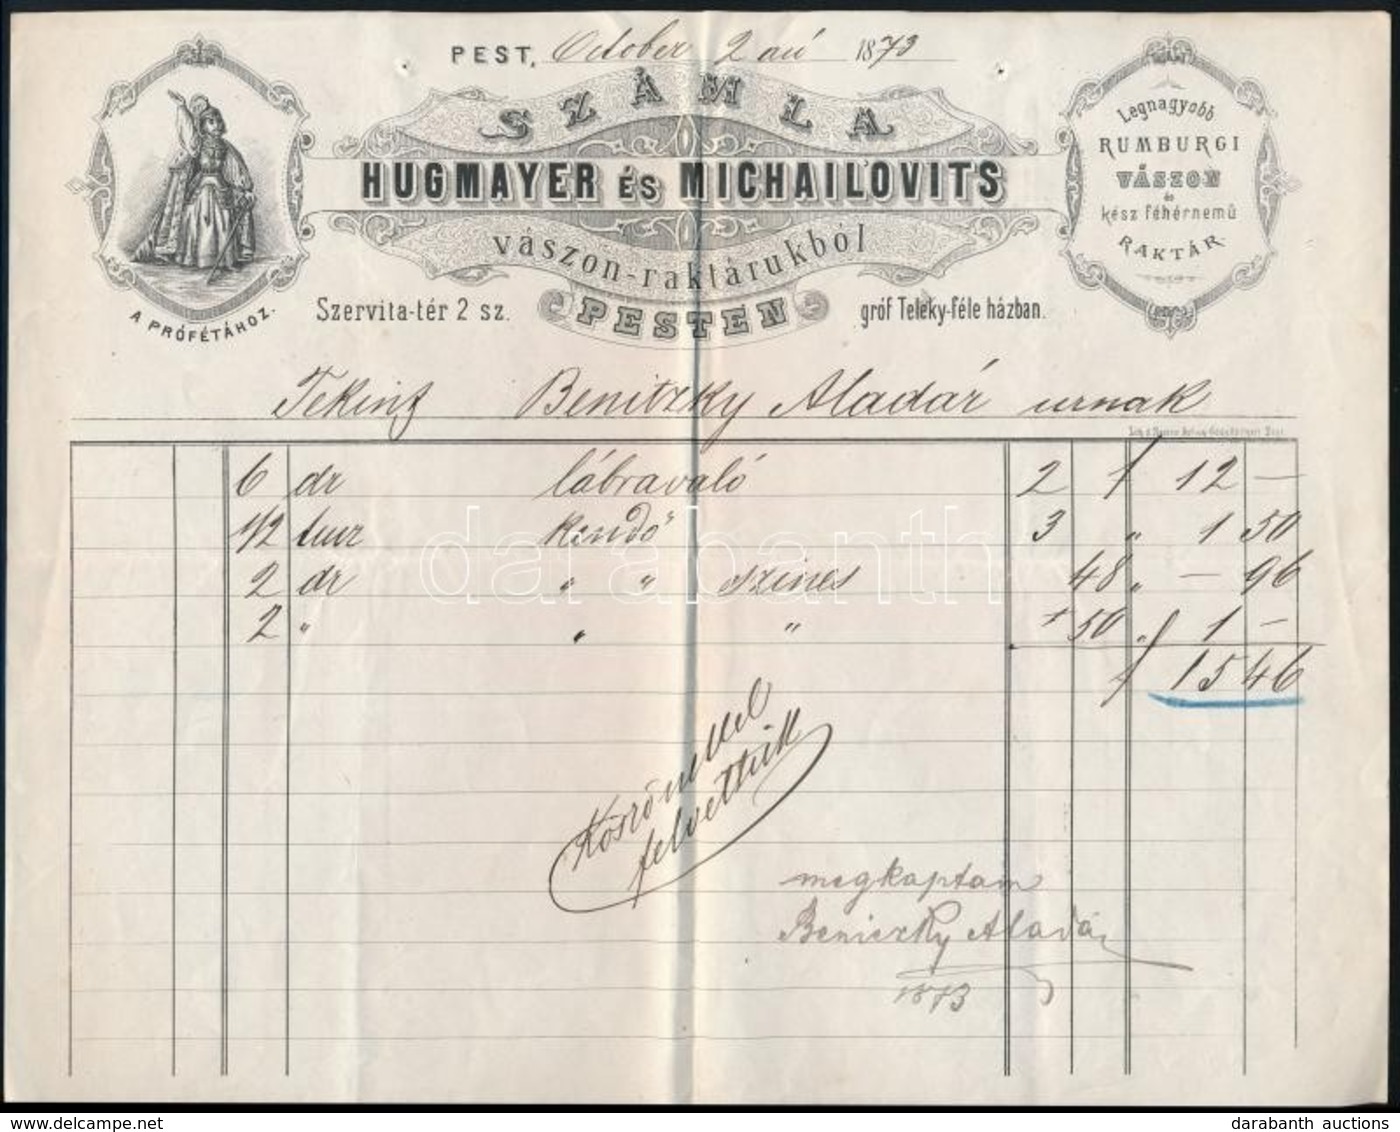 PEST, October 2 án 1873
SZÁMLA
HUGMAYER és MICHAILOVITS
vászon-raktárukból
PESTEN
Szervita-tér 2 sz.
gróf Teleky-féle házban.
A PRÓFÉTÁHOZ.
Legnagyobb
RUMBURGI
VÁSZON
és
kész fehérnemű
RAKTÁR
Benitzky Aladár urnak
6 dr lábravaló 2 f 12 —
1/2 tucz kendő 3 " 1 50
2 dr " " szines 48 " — 96
2 " " " 50 " 1 —
f 15 46
Köszönettel
felvettük
megkaptam
Beniczky Aladár
1873
darabanth
darabanth auctions